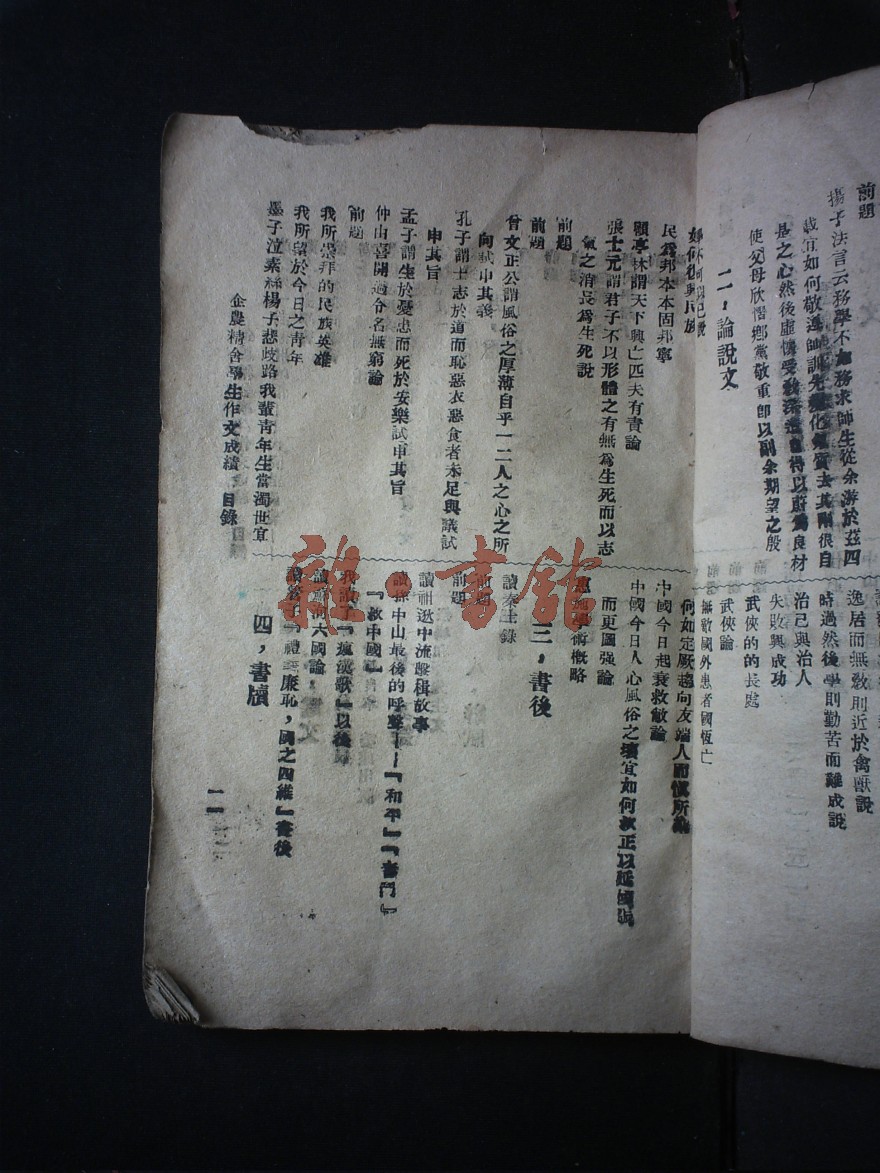 前題
揚子法言云務學不如務求師生從余游於茲四
載宜如何敬遵師訓先變化氣質去其剛很自
是之心然後虛懷受教深造自得以蔚為良材
使父母欣慰鄉黨敬重即以副余期望之殷
二，論說文
如何復興民族
民為邦本本固邦寧
顧亭林謂天下興亡匹夫有責論
張士元謂君子不以形體之有無為生死而以志
氣之消長為生死說
前題
前題
曾文正公謂風俗之厚薄自乎一二人之心之所
向試申其義
孔子謂士志於道而恥惡衣惡食者未足與議試
申其旨
孟子謂生於憂患而死於安樂試申其旨
仲由喜聞過令名無窮論
前題
我所崇拜的民族英雄
我所望於今日之青年
墨子泣素絲楊子悲歧路我輩青年生當濁世宜
逸居而無教則近於禽獸說
時過然後學則勤苦而難成說
治己與治人
失敗與成功
武俠的的長處
武俠論
無敵國外患者國恆亡
何如定厥趨向友端人而慎所染
中國今日起衰救敝論
中國今日人心風俗之壞宜如何救正以延國脈
而更圖強論
惠施學術概略
三，書後
讀秦士錄
前題
前題
讀祖逖中流擊楫故事
讀孫中山最後的呼聲——『和平』『奮鬥』
『救中國』
我讀了『瘋漢歌』以後
讀蘇洵六國論
讀管子『禮義廉恥，國之四維』書後
四，書牘
金農精舍學生作文成績 目錄
一一
雜·書館